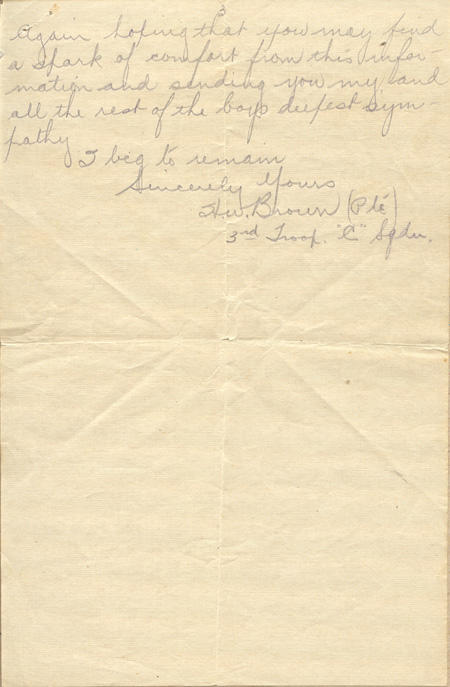 3
Again hoping that you may find
a spark of comfort from this infor-
mation and sending you my and
all the rest of the boys deepest sym-
pathy
I beg to remain
Sincerely Yours
H.W. Brown (Pte)
3rd Troop. "C" Sqdn.